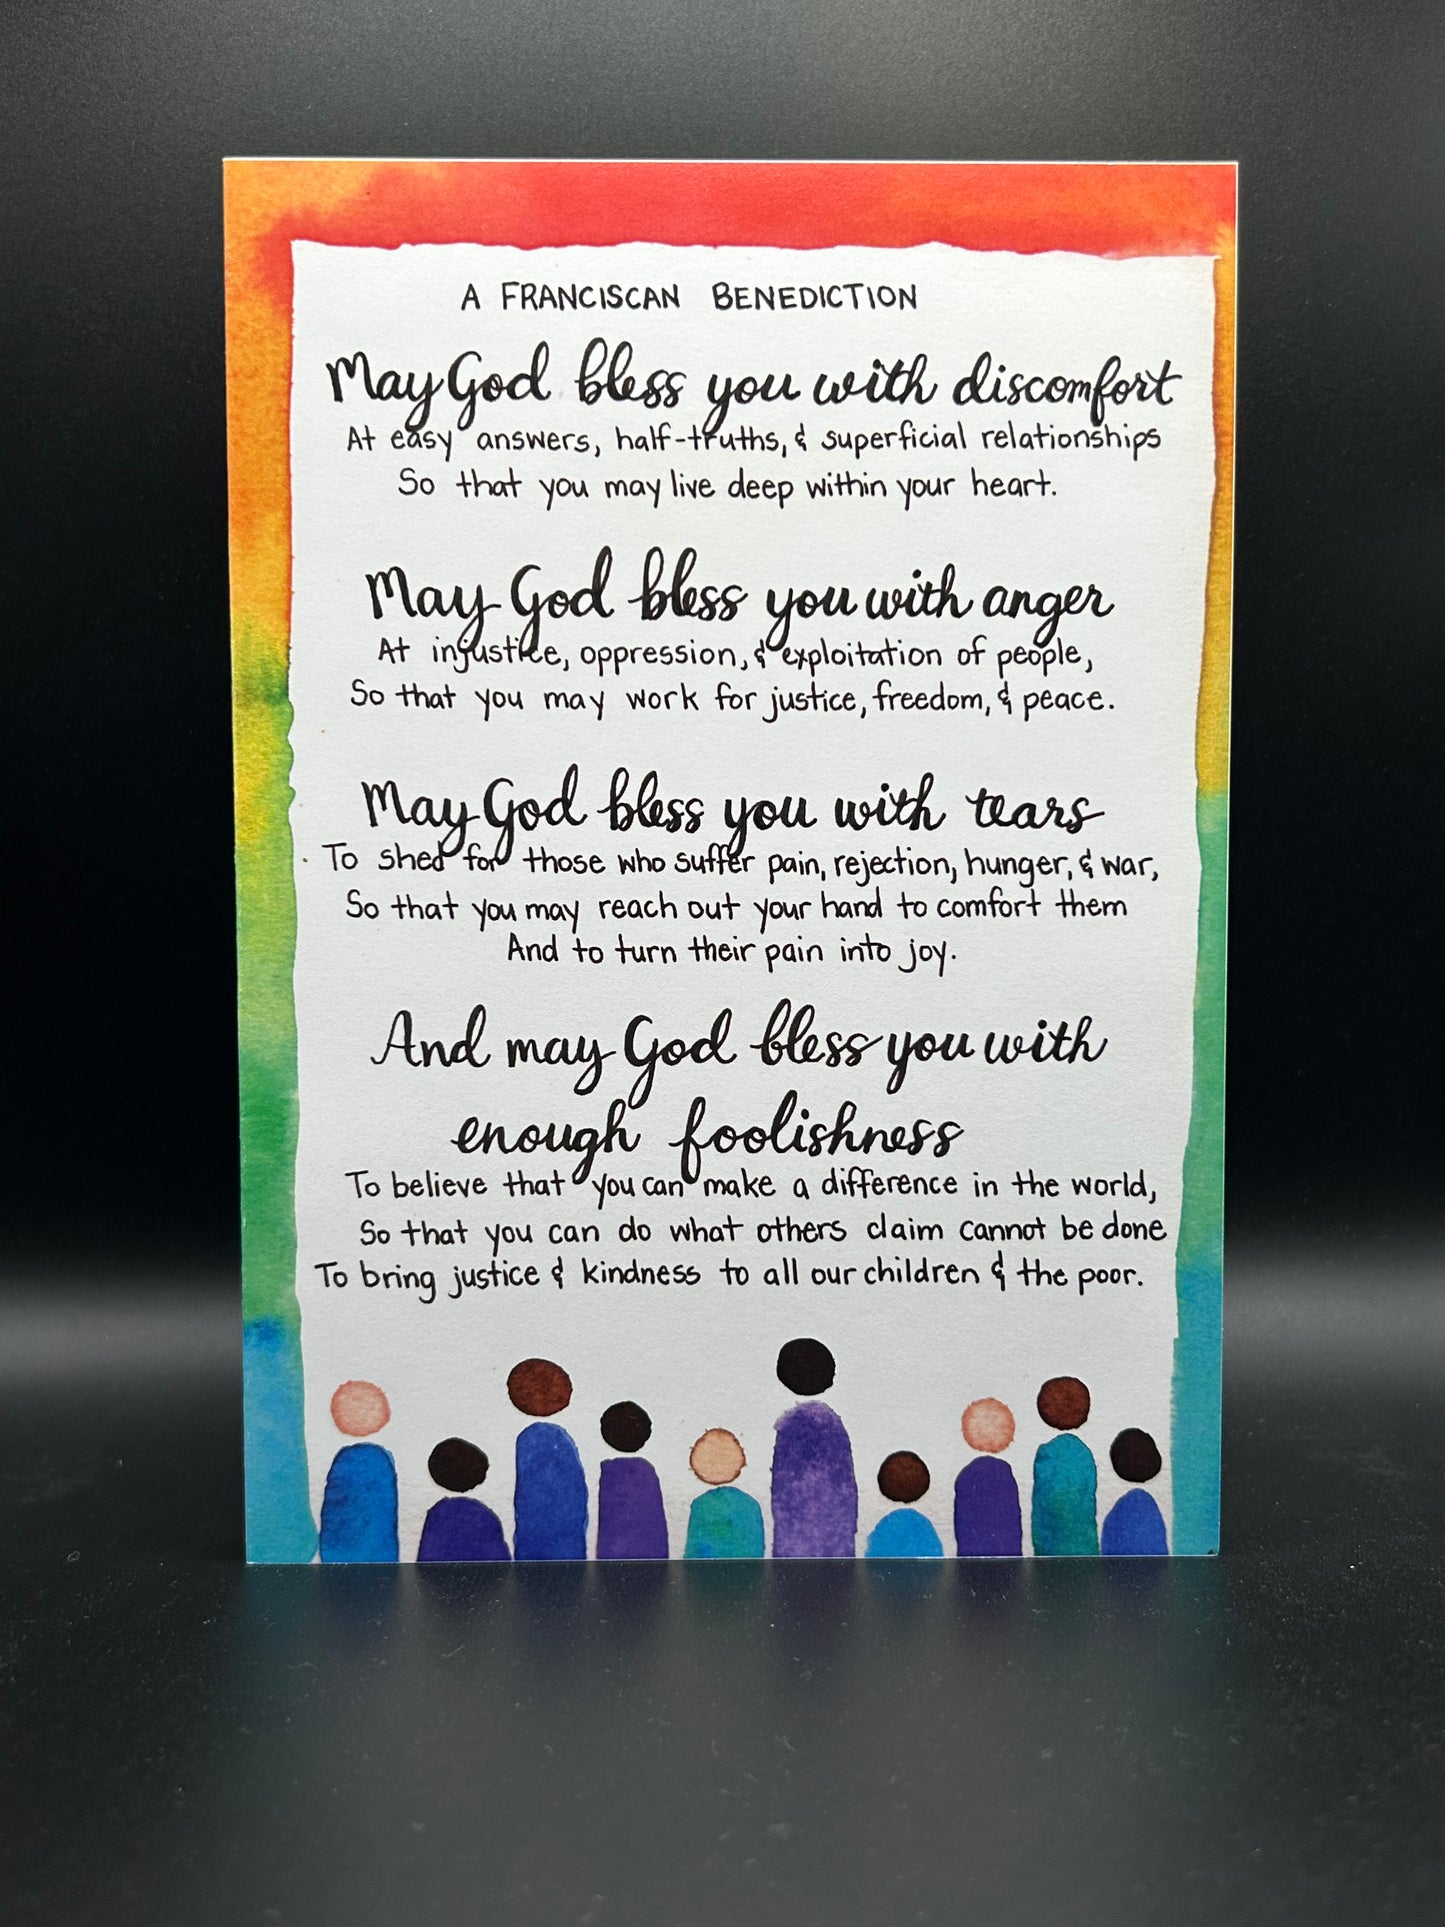 A FRANCISCAN BENEDICTION
May God bless you with discomfort
At easy answers, half-truths, & superficial relationships
So that you may live deep within your heart.
May God bless you with anger
At injustice, oppression, & exploitation of people,
So that you may work for justice, freedom, & peace.
May God bless you with tears
To shed for those who suffer pain, rejection, hunger, & war,
So that you may reach out your hand to comfort them
And to turn their pain into joy.
And may God bless you with
enough foolishness
To believe that you can make a difference in the world,
So that you can do what others claim cannot be done
To bring justice & kindness to all our children & the poor.